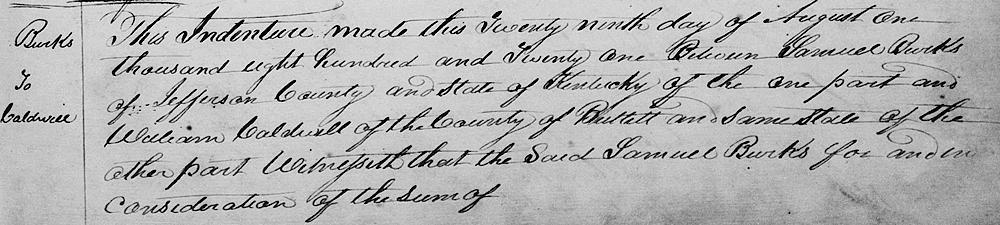 Burks
To
Caldwell
This Indenture made this Twenty ninth day of August One
thousand eight hundred and Twenty one Between Samuel Burks
of Jefferson County and State of Kentucky of the one part and
William Caldwell of the County of Bullitt and Same State of the
other part Witnesseth that the Said Samuel Burks for and in
Consideration of the sum of